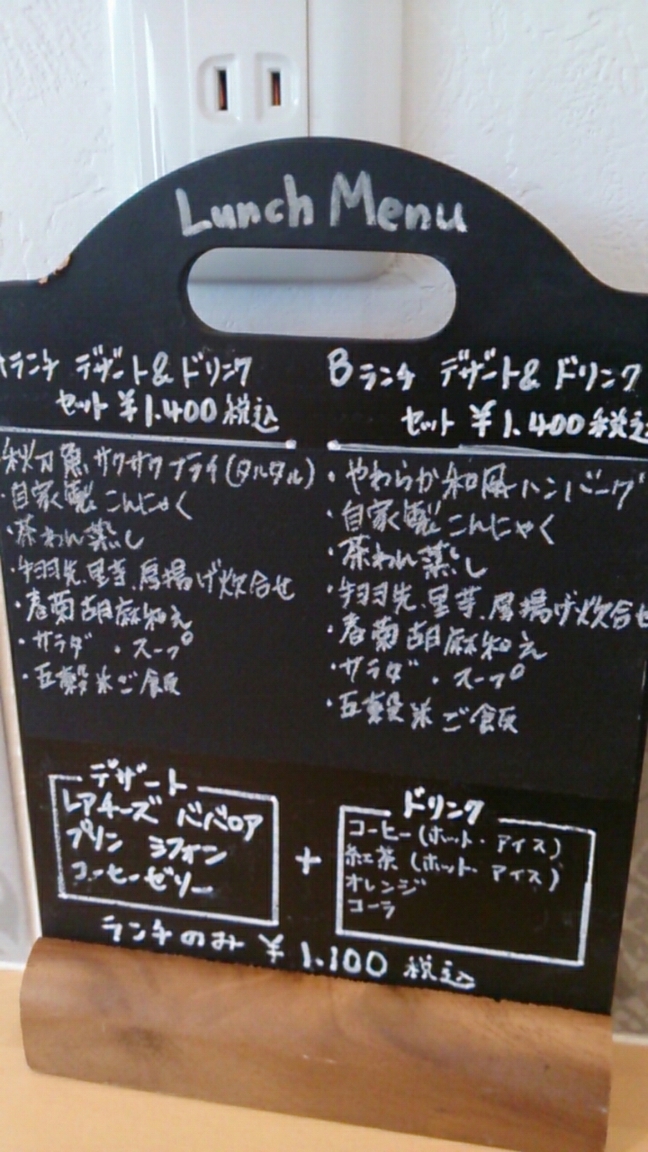 Lunch Menu
Aランチ デザート& ドリンク
セット ¥1.400 税込
秋刀魚サクサクフライ(タルタル)
・自家製こんにゃく
・茶わん蒸し
・手羽先、里芋、厚揚げ炊合せ
・春菊胡麻和え
・サラダ ・スープ
・五穀米ご飯
Bランチ デザート& ドリンク
セット ¥1.400 税込
・やわらか和風ハンバーグ
・自家製こんにゃく
・茶わん蒸し
・手羽先、里芋、厚揚げ炊合せ
・春菊胡麻和え
・サラダ ・スープ
・五穀米ご飯
デザート
レアチーズ ババロア
プリン シフォン
コーヒーゼリー
+
ドリンク
コーヒー(ホット・アイス)
紅茶(ホット・アイス)
オレンジ
コーラ
ランチのみ ¥1.100 税込